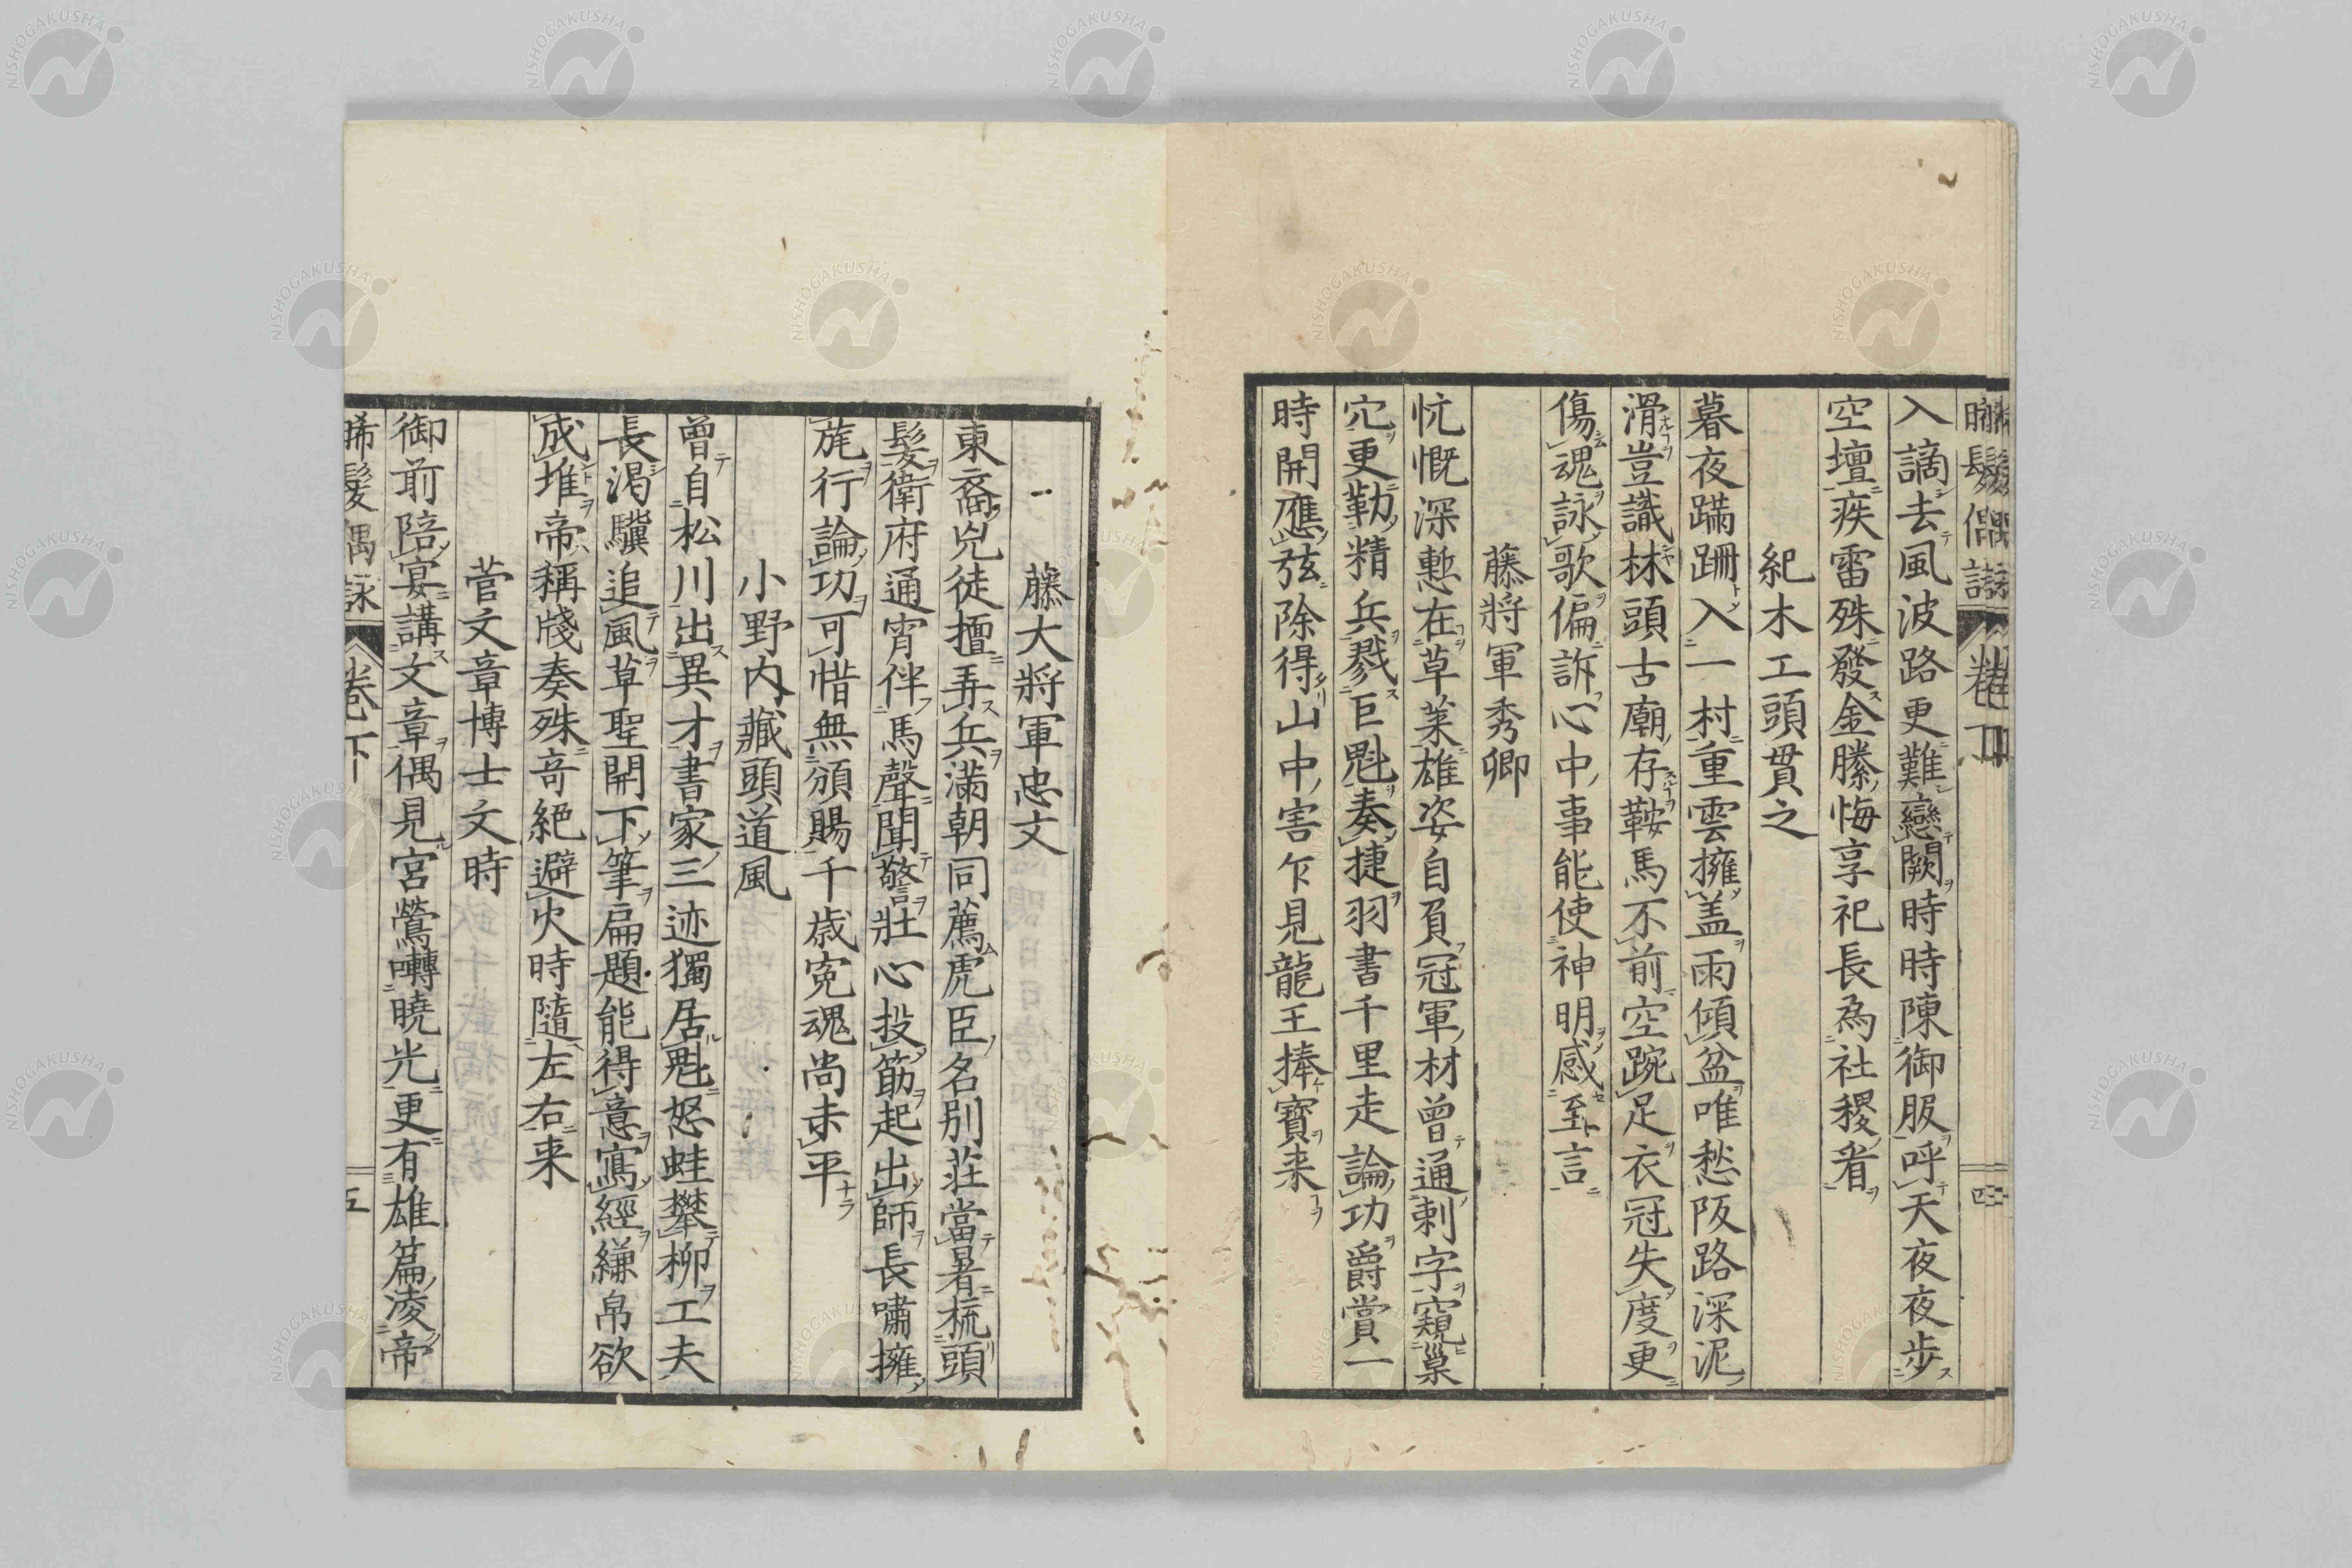 入謫去風波路更難戀闕時時陳御服呼天夜夜步
空壇疾雷殊發金縢悔享祀長為社稷看
紀木工頭貫之
暮夜蹣跚入一村重雲擁盖雨傾盆唯愁阪路深泥
滑豈識林頭古廟存鞍馬不前空踠足衣冠失度更
傷魂詠歌偏訴心中事能使神明感至言
藤將軍秀卿
忼慨深慙在草萊雄姿自負冠軍材曾通刺字窺巢
穴更勒精兵戮巨魁奏捷羽書千里走論功爵賞一
時開應弦除得山中害乍見龍王捧寶来
藤大將軍忠文
東裔兇徒擅弄兵滿朝同薦虎臣名別莊當暑梳頭
髮衛府通宵伴馬聲聞警壯心投筯起出師長嘯擁
旄行論功可惜無頒賜千歳寃魂尚未平
小野内藏頭道風
曾自松川出異才書家三迹獨居魁怒蛙攀柳工夫
長渴驥追風草聖開下筆扁題能得意寫經縑帛欲
成堆帝稱牋奏殊竒絕避火時隨左右来
菅文章博士文時
御前陪宴講文章偶見宮鶯囀曉光更有雄篇凌帝
晞髮偶詠 卷下 五
NISHOGAKUSHA